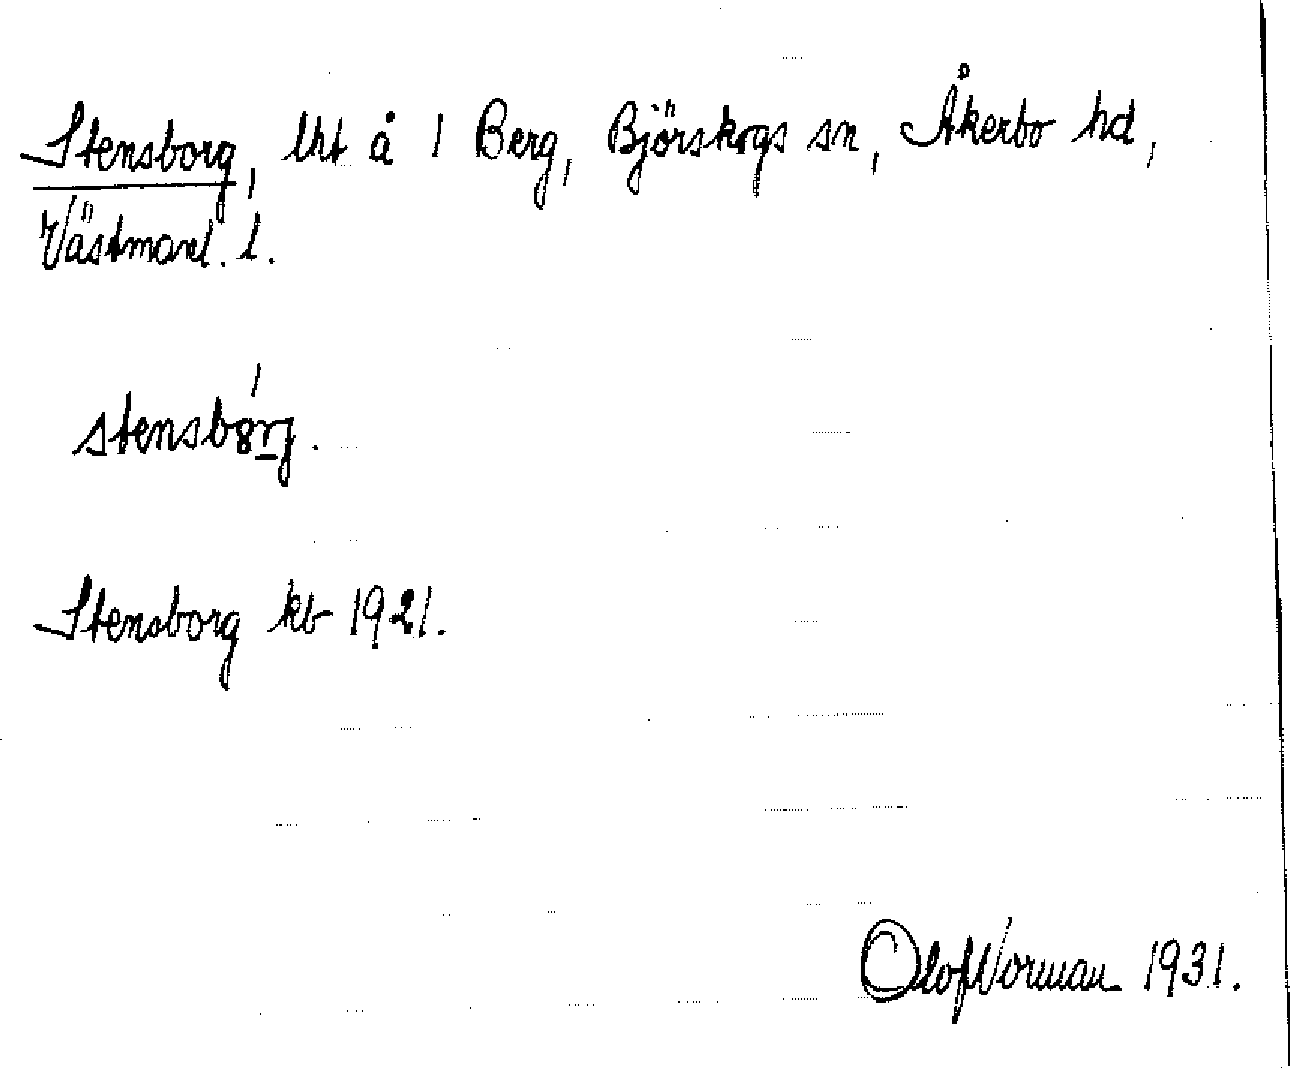 Stensborg, lht å 1 Berg, Björskogs sn, Åkerbo hd,
Västmanl. l.
stensbórj.
Stensborg kb 1921.
Olof Norman 1931.